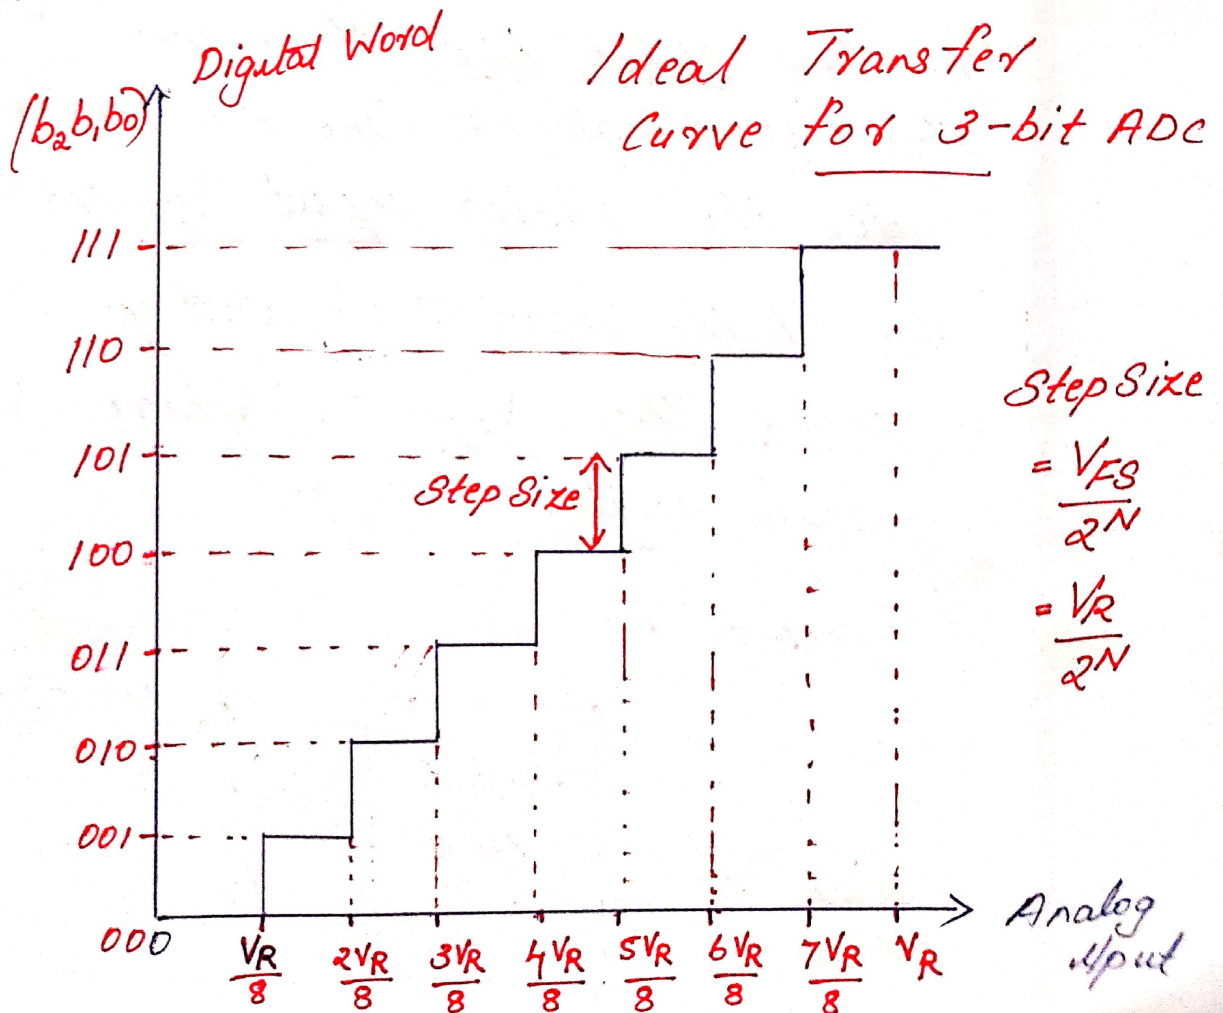 Digital Word
(b₂b₁b₀)
Ideal Transfer
Curve for 3-bit ADC
111
110
101
100
011
010
001
000
Step Size
Step Size
= V_FS / 2^N
= V_R / 2^N
0
V_R/8 2V_R/8 3V_R/8 4V_R/8 5V_R/8 6V_R/8 7V_R/8 V_R
Analog
Input